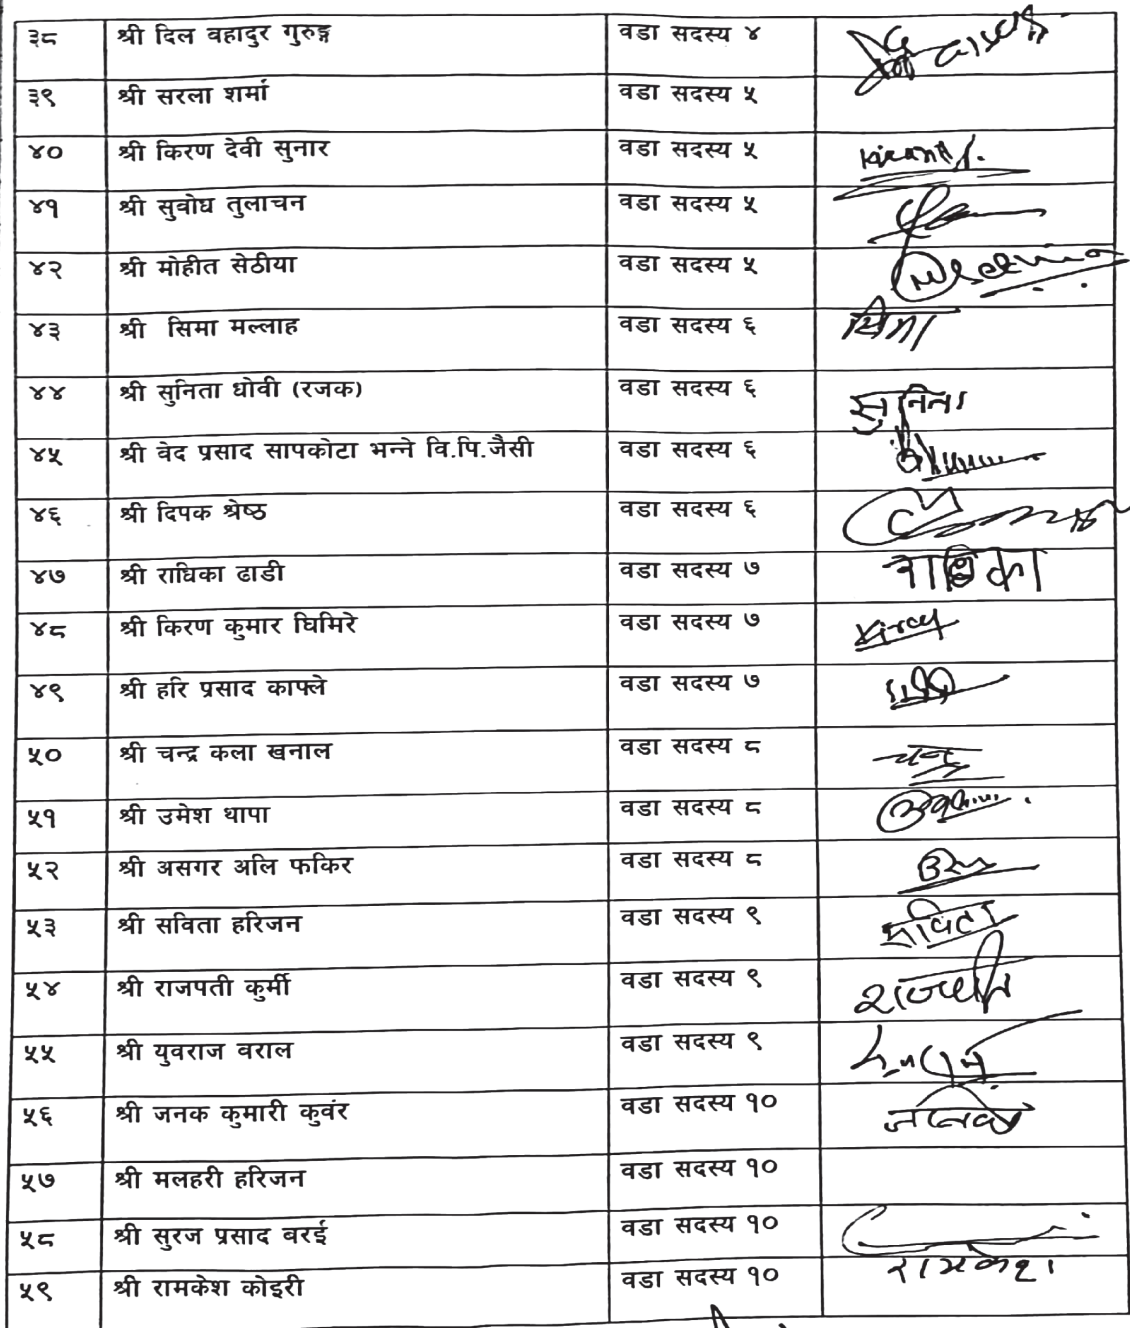 ३८ श्री दिल वहादुर गुरुङ्ग वडा सदस्य ४
३९ श्री सरला शर्मा वडा सदस्य ५
४० श्री किरण देवी सुनार वडा सदस्य ५
४१ श्री सुवोध तुलाचन वडा सदस्य ५
४२ श्री मोहीत सेठीया वडा सदस्य ५
४३ श्री सिमा मल्लाह वडा सदस्य ६ सिमा
४४ श्री सुनिता धोवी (रजक) वडा सदस्य ६ सुनिता
४५ श्री वेद प्रसाद सापकोटा भन्ने वि.पि.जैसी वडा सदस्य ६
४६ श्री दिपक श्रेष्ठ वडा सदस्य ६
४७ श्री राधिका ढाडी वडा सदस्य ७ राधिका
४८ श्री किरण कुमार घिमिरे वडा सदस्य ७
४९ श्री हरि प्रसाद काफ्ले वडा सदस्य ७
५० श्री चन्द्र कला खनाल वडा सदस्य ८ चन्द्र
५१ श्री उमेश थापा वडा सदस्य ८
५२ श्री असगर अलि फकिर वडा सदस्य ८
५३ श्री सविता हरिजन वडा सदस्य ९ सविता
५४ श्री राजपती कुर्मी वडा सदस्य ९
५५ श्री युवराज वराल वडा सदस्य ९
५६ श्री जनक कुमारी कुवंर वडा सदस्य १०
५७ श्री मलहरी हरिजन वडा सदस्य १०
५८ श्री सुरज प्रसाद बरई वडा सदस्य १०
५९ श्री रामकेश कोइरी वडा सदस्य १० रामकेश